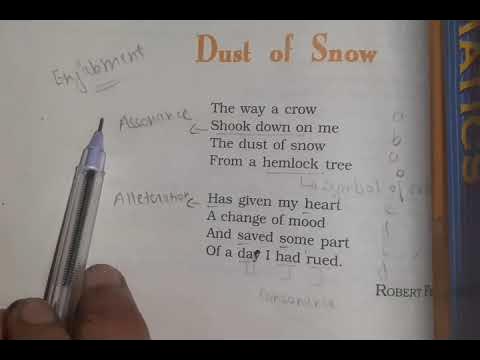 Dust of Snow
Enjabment
The way a crow a
Assonance Shook down on me b
The dust of snow a
From a hemlock tree
symbol of
Alleteration Has given my heart c
A change of mood
And saved some part
Of a day I had rued. d
consonance
ROBERT
ATICS